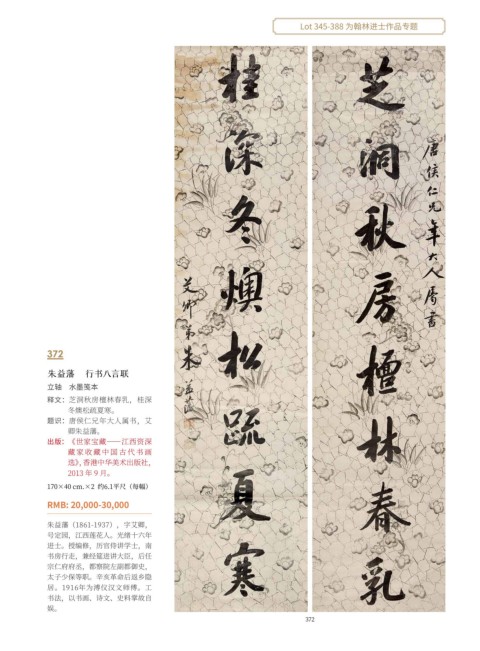 Lot 345-388 为翰林进士作品专题
芝洞秋房檀林春乳
唐侯仁兄年大人属书
桂深冬燠松疏夏寒
艾卿弟朱益藩
372
朱益藩 行书八言联
立轴 水墨笺本
释文：芝洞秋房檀林春乳，桂深
冬燠松疏夏寒。
题识：唐侯仁兄年大人属书，艾
卿朱益藩。
出版：《世家宝藏——江西资深
藏家收藏中国古代书画
选》，香港中华美术出版社，
2013 年 9 月。
170×40 cm.×2 约6.1平尺（每幅）
RMB: 20,000-30,000
朱益藩（1861-1937），字艾卿，
号定园，江西莲花人。光绪十六年
进士。授编修，历官侍讲学士，南
书房行走，兼经筵进讲大臣，后任
宗仁府府丞，都察院左副都御史，
太子少保等职。辛亥革命后返乡隐
居。1916年为溥仪汉文师傅。工
书法，以书画、诗文、史料掌故自
娱。
372